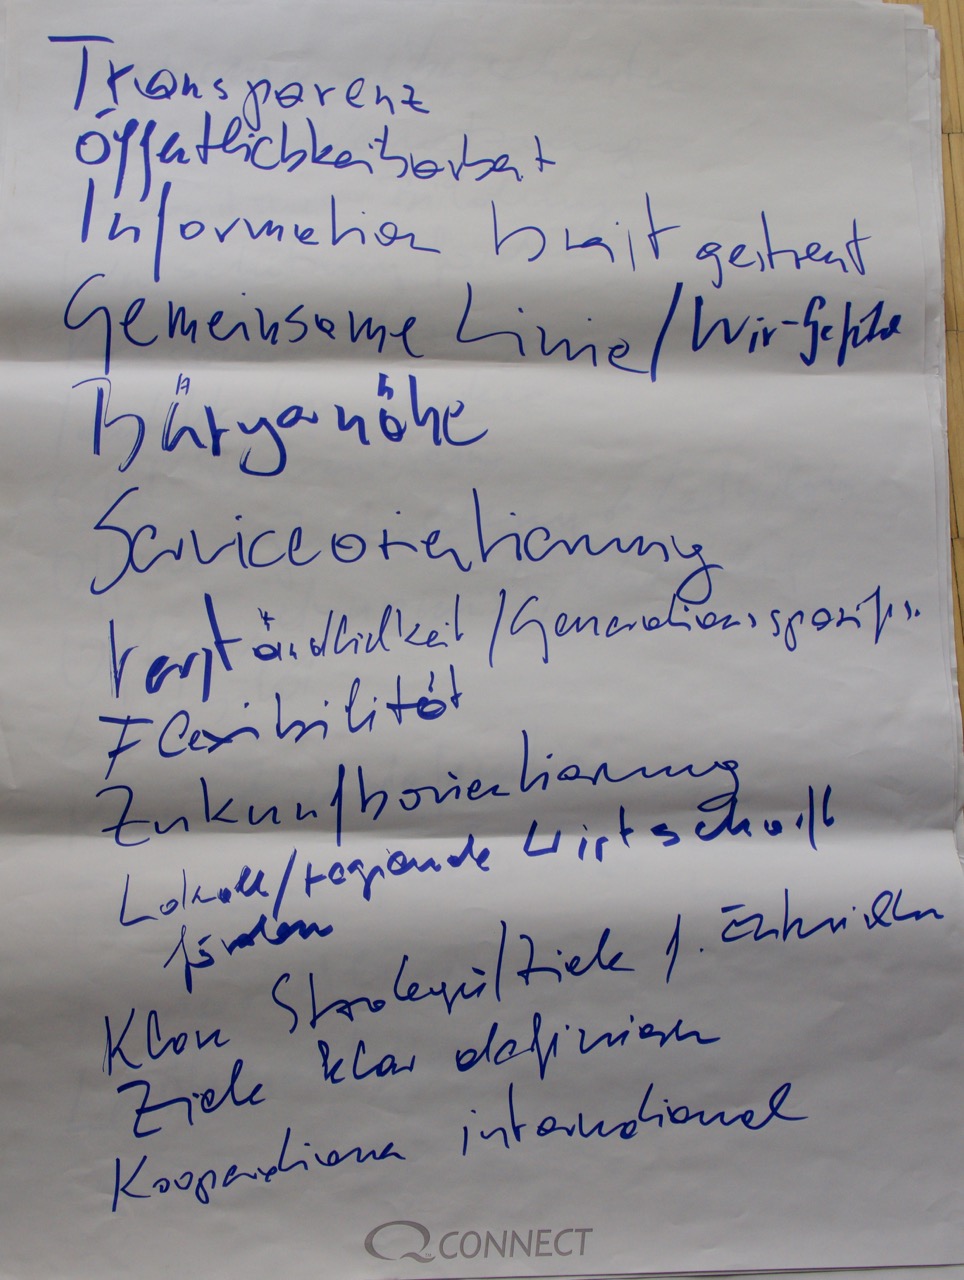 Transparenz
Öffentlichkeitsarbeit
Information breit gestreut
Gemeinsame Linie / Wir-Gefühl
Bürgernähe
Serviceorientierung
Verständlichkeit / Generationsspezifi.
Flexibilität
Zukunftsorientierung
Lokale / regionale Wirtschaft
fördern
Klare Strategie / Ziele f. Entwickeln
Ziele klar definieren
Kooperationen international
Q CONNECT